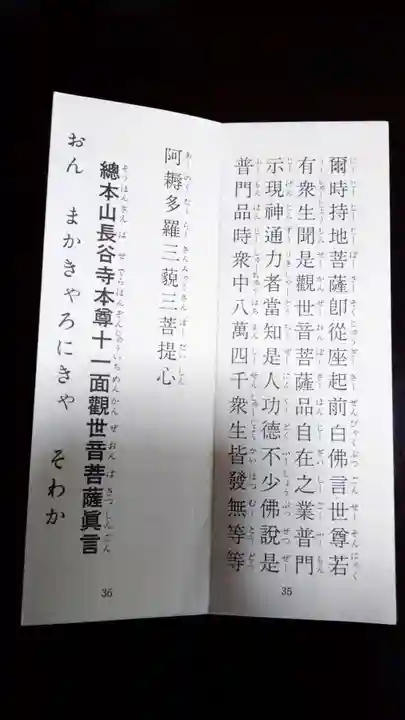 爾時持地菩薩卽從座起前白佛言世尊若
有衆生聞是觀世音菩薩品自在之業普門
示現神通力者當知是人功德不少佛說是
普門品時衆中八萬四千衆生皆發無等等
35
阿耨多羅三藐三菩提心
總本山長谷寺本尊十一面觀世音菩薩眞言
おん まかきゃろにきゃ そわか
36